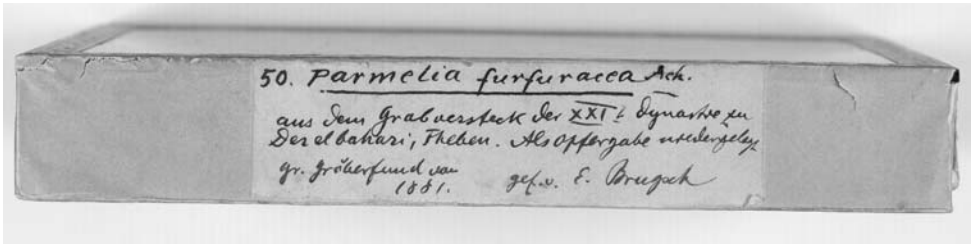 50. Parmelia furfuracea Ach.
aus dem Grabversteck der XXIt. Dynastie zu
Der el bahari, Theben. Als Opfergabe niedergelegt
gr. Gräberfund von
1881. gef. v. E. Brugsch